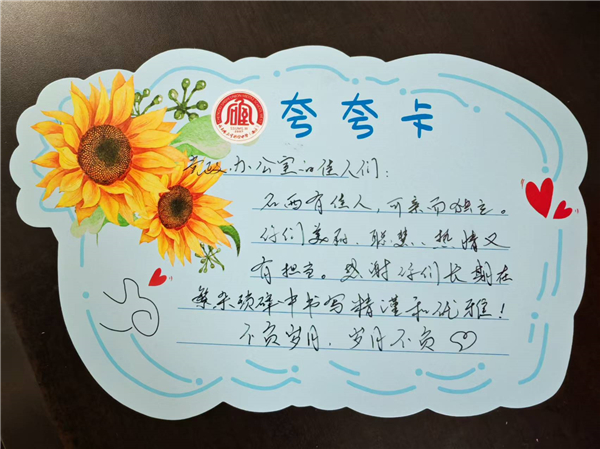 夸夸卡
党政办公室的佳人们：
石西有佳人，可亲而独立。
你们美丽、聪慧、热情又
有担当。感谢你们长期在
繁杂琐碎中书写精谨和优雅！
不负岁月，岁月不负